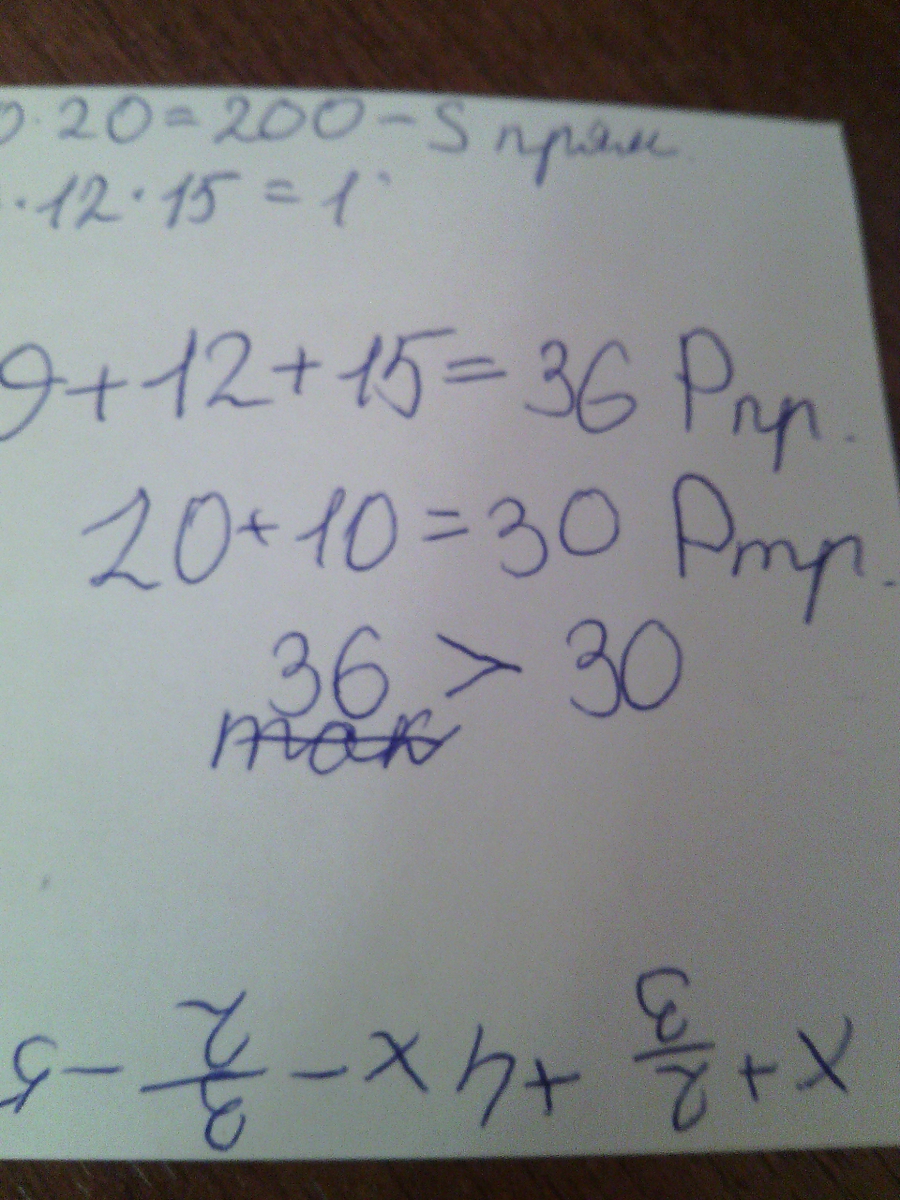 0·20=200-S прям.
·12·15=1
9+12+15=36 Pпр.
20+10=30 Pтр.
36 > 30
так
x+2/3+4x-